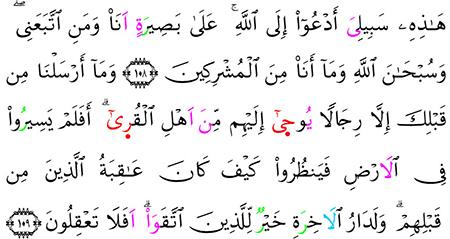 هَٰذِهِۦ سَبِيلِيَ أَدْعُوٓاْ إِلَى اَ۬للَّهِۚ عَلَىٰ بَصِيرَةٍ اَنَا۠ وَمَنِ اِ۪تَّبَعَنِےۖ
وَسُبْحَٰنَ اَ۬للَّهِ وَمَآ أَنَا۠ مِنَ اَ۬لْمُشْرِكِينَ ١٠٨ وَمَآ أَرْسَلْنَا مِن
قَبْلِكَ إِلَّا رِجَالًا يُوحَىٰٓ إِلَيْهِم مِّنَ اَهْلِ اِ۬لْقُرَىٰٓۗ أَفَلَمْ يَسِيرُواْ
فِے اِ۬لَارْضِ فَيَنظُرُواْ كَيْفَ كَانَ عَٰقِبَةُ اُ۬لَّذِينَ مِن
قَبْلِهِمْۗ وَلَدَارُ اُ۬لَاخِرَةِ خَيْرٌ لِّلَّذِينَ اَ۪تَّقَوَاْۗ اَفَلَا تَعْقِلُونَ ١٠٩